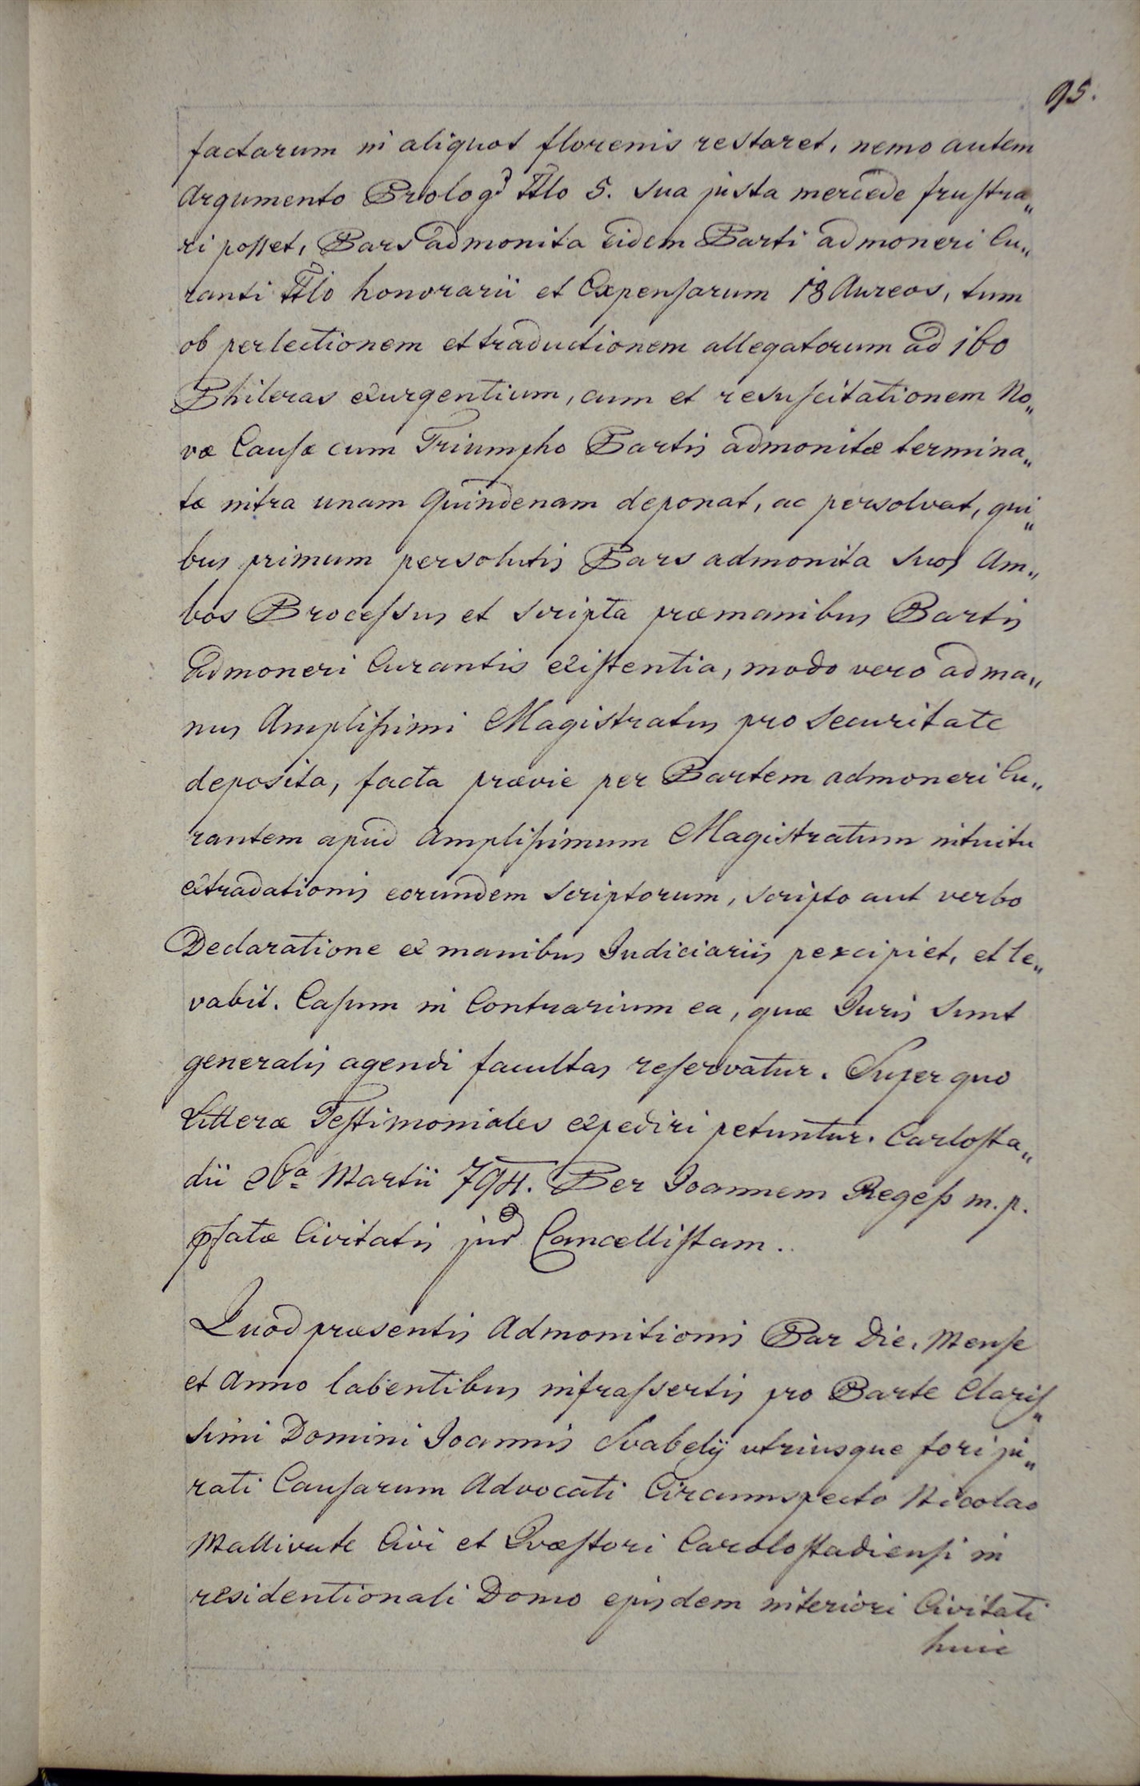 95.
factarum in aliquot florenis restaret, nemo autem
Argumento Prolog? Ttlo 5. sua justa mercede frustra„
ri posset, Pars admonita eidem Parti admoneri Cu„
ranti Ttlo honorarii et Expensarum 18 Aureos, tum
ob perlectionem et traductionem allegatorum ad 160
Phileras exurgentium, cum et resuscitationem No„
væ Causæ cum Triumpho Partis admonitæ termina„
tæ intra unam Quindenam deponat, ac persolvat, qui„
bus primum persolutis Pars admonita suos Am„
bos Processus et scripta præmanibus Partis
Admoneri Curantis existentia, modo vero ad ma„
nus Amplissimi Magistratus pro securitate
deposita, facta prævie per Partem admoneri Cu„
rantem apud Amplissimum Magistratum intuitu
extradationis eorundem scriptorum, scripto aut verbo
Declaratione ex manibus Judiciariis percipiet, et le„
vabit. Casum in Contrarium ea, quæ Juris sunt
generalis agendi facultas reservatur. Super quo
Litteræ Testimoniales expediri petuntur. Carlosta„
dii 26a Martii 794. Per Joannem Regess m. p.
pfatæ Civitatis jud Cancellistam.
Quod præsentis Admonitionis Par Die, Mense
et Anno labentibus infrassertis pro Parte Claris„
simi Domini Joannis Svabelÿ utriusque fori ju„
rati Causarum Advocati Circumspecto Nicolao
Mallivuk Civi et Quæstori Carolostadiensi in
residentionali Domo ejusdem interiori Civitati
huic